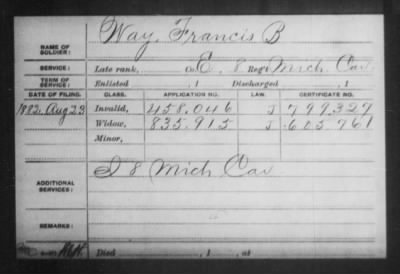 NAME OF SOLDIER: Way, Francis B
SERVICE: Late rank, Co. E, 8 Reg't Mich Cav
TERM OF SERVICE: Enlisted , 1 Discharged , 1
DATE OF FILING. CLASS. APPLICATION NO. LAW. CERTIFICATE NO.
1882, Aug 23 Invalid, 458.046 J 799.329
Widow, 835.915 J 605.961
Minor,
ADDITIONAL SERVICES: I 8 Mich Cav
REMARKS:
Died , 1 , at